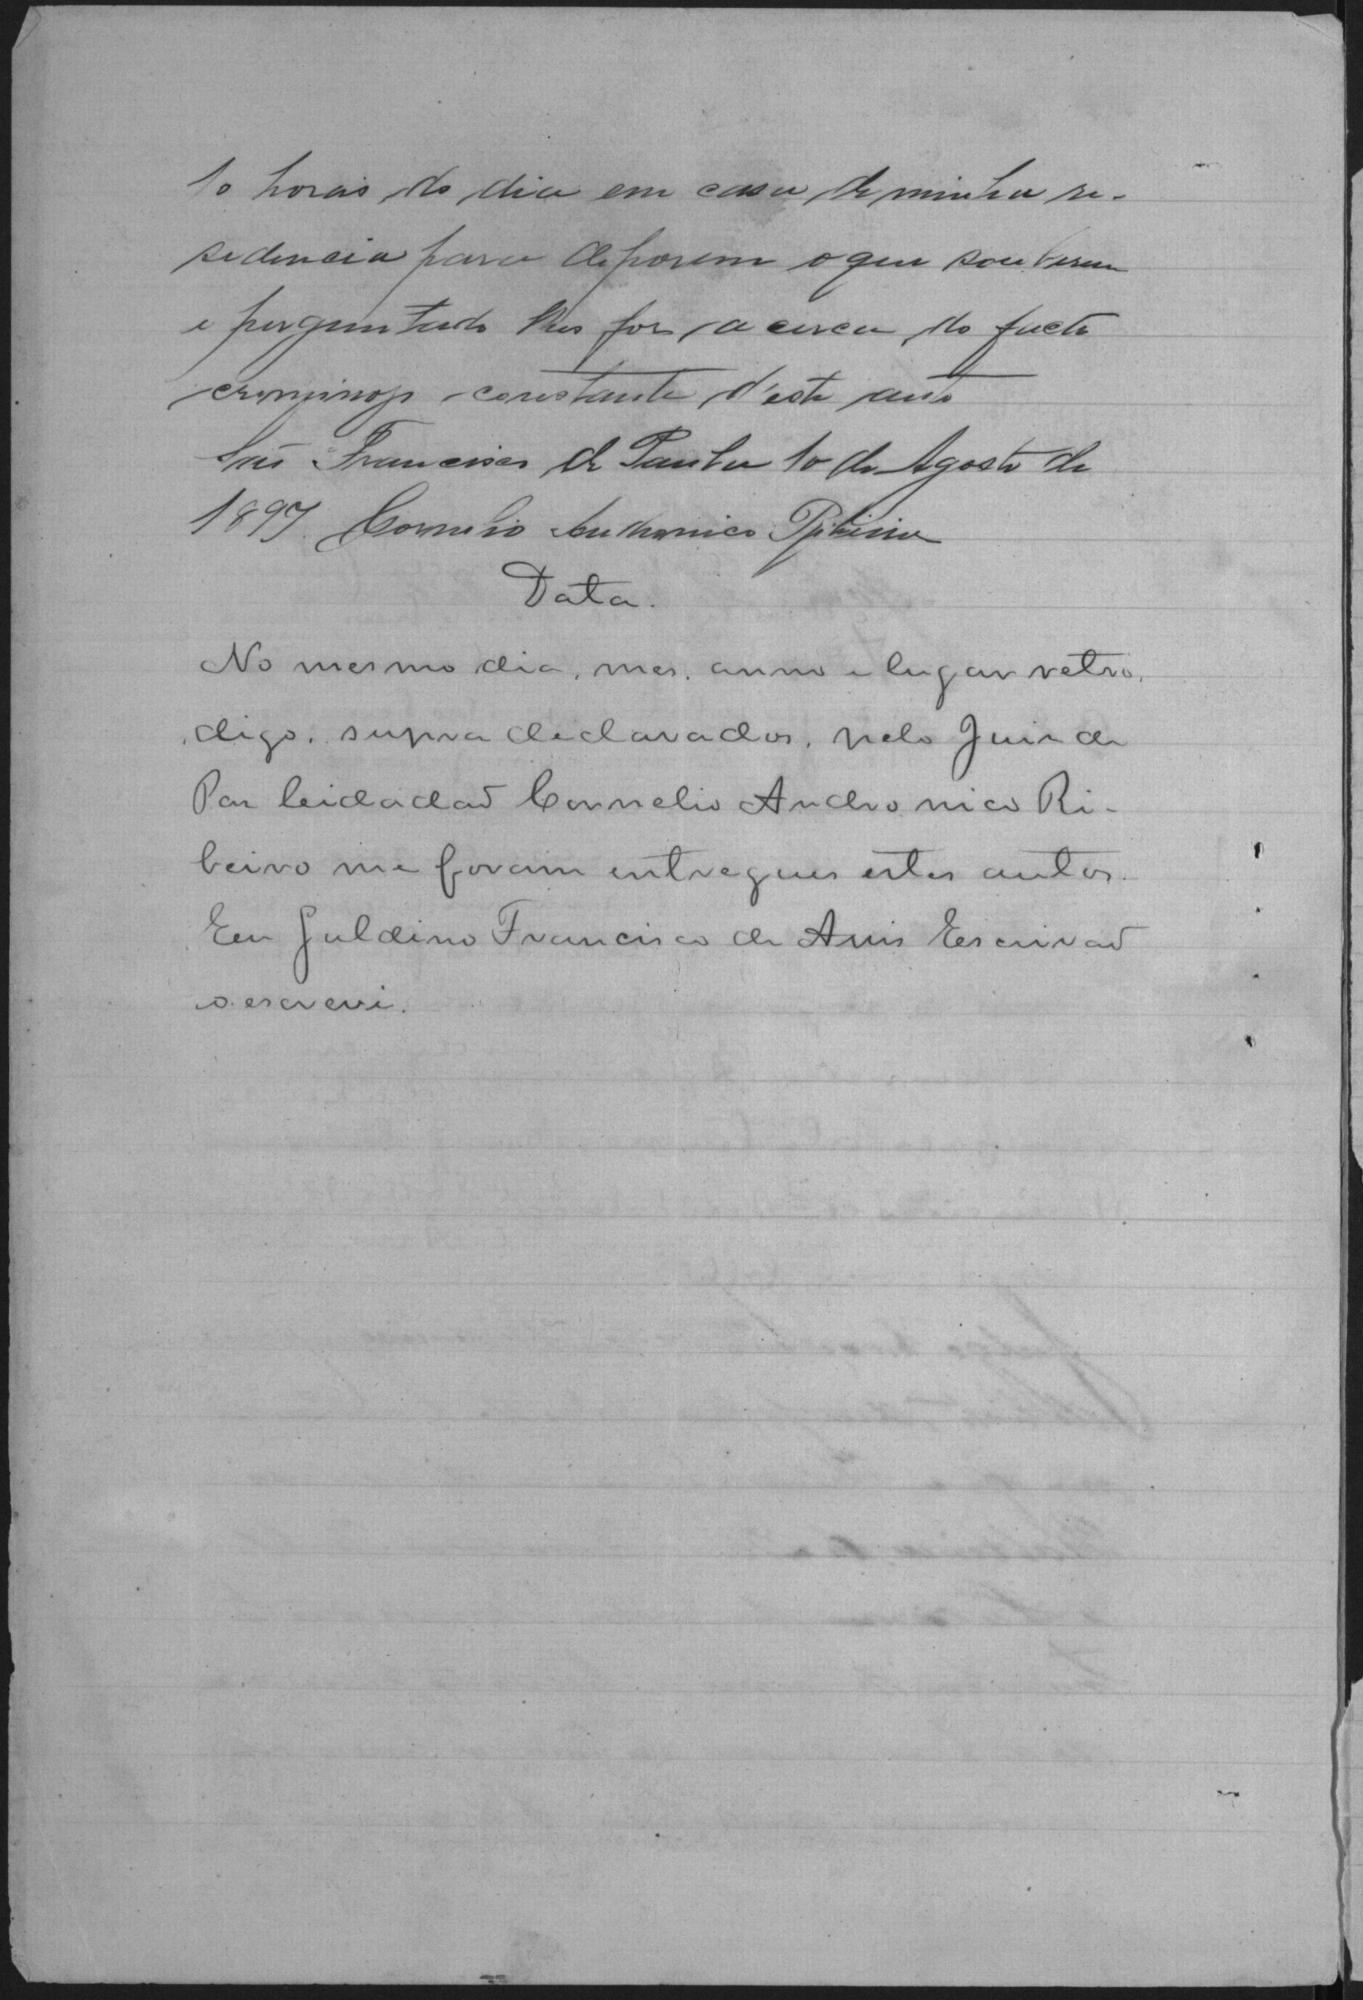 10 horas do dia em casa de minha re-
sedencia para deporem o que souberem
e perguntado lhes for acerca do facto
creminoso constante d'este auto
São Francisco de Paula 10 de Agosto de
1897 Cornelio Andronico Ribeiro
Data.
No mesmo dia, mes, anno e lugar retro,
digo, supra declarados, pelo Juiz de
Paz Cidadaõ Cornelio Andronico Ri-
beiro me foram entregues estes autos.
Eu Galdino Francisco de Assis Escrivaõ
o escrevi.